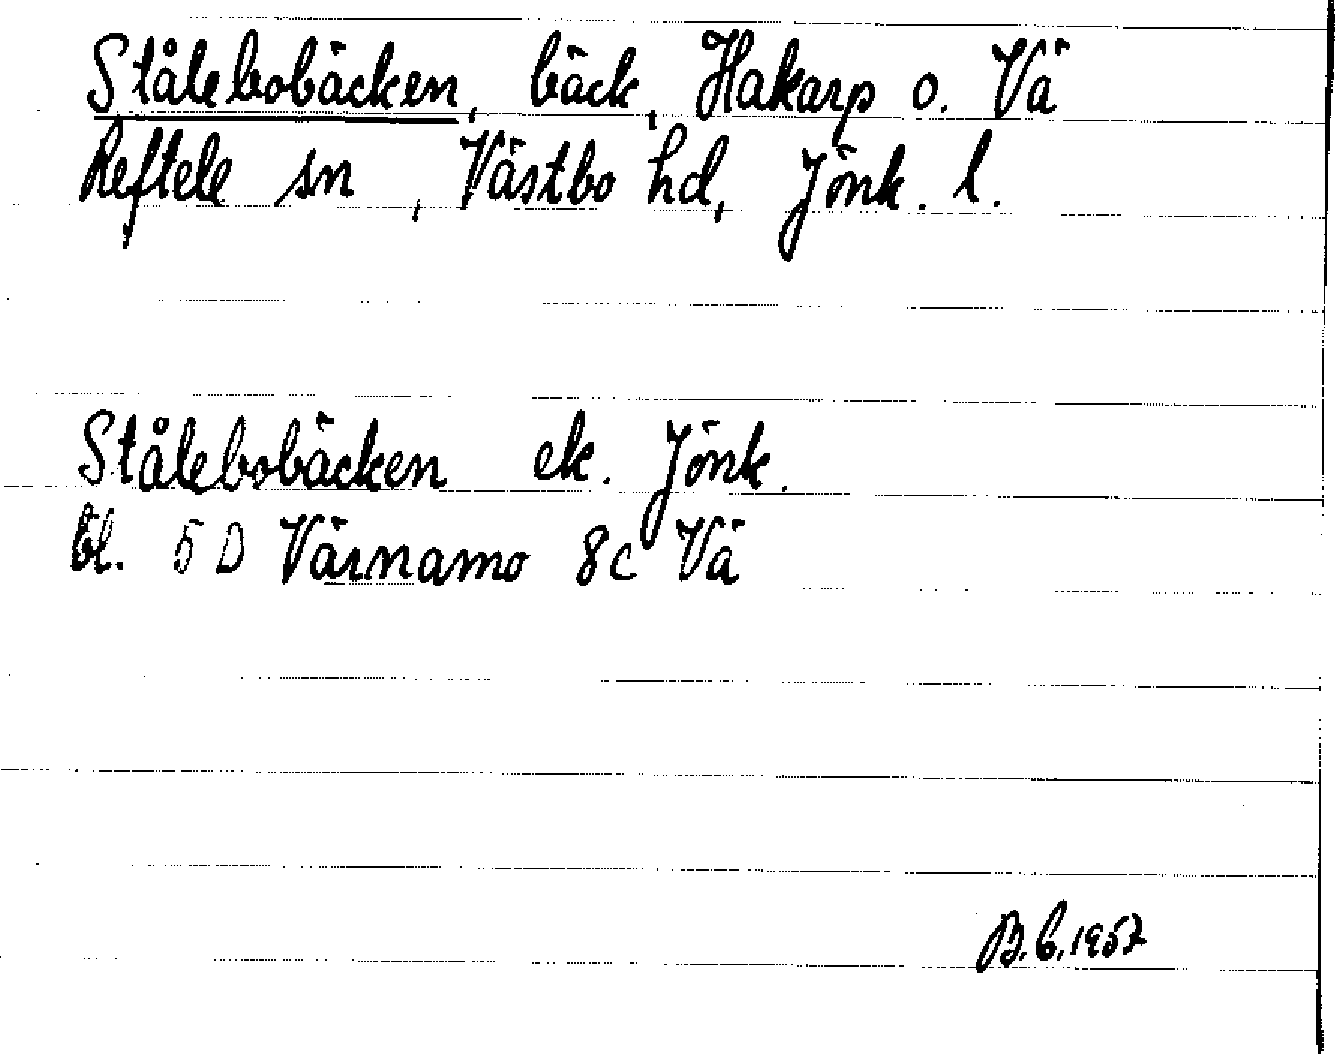 Stålebobäcken, bäck, Hakarp o. Vä
Reftele sn, Västbo hd, Jönk. l.
Stålebobäcken ek. Jönk.
bl. 5 D Värnamo 8c Vä
B.C. 1957